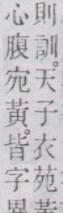 則訓。天子衣苑黃
心腹宛黃。皆字異